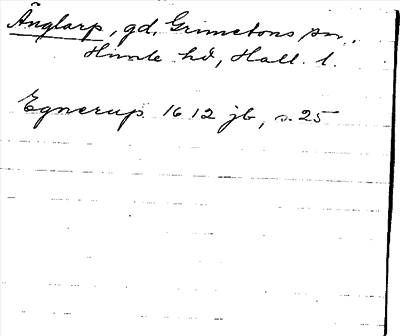 Änglarp, gd, Grimetons sn.,
Himle hd, Hall. l.
Egnerup 1612 jb, s. 25